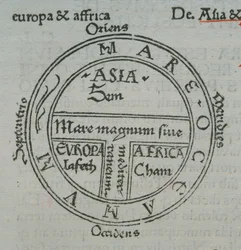 europa & affrica
De. Asia &
Oriens
MARE·OCEANVM
ASIA
Sem
Septentrio
Meridies
Mare magnum siue
mediter
raneum
EVROPA
Iafeth
AFRICA
Cham
Occidens